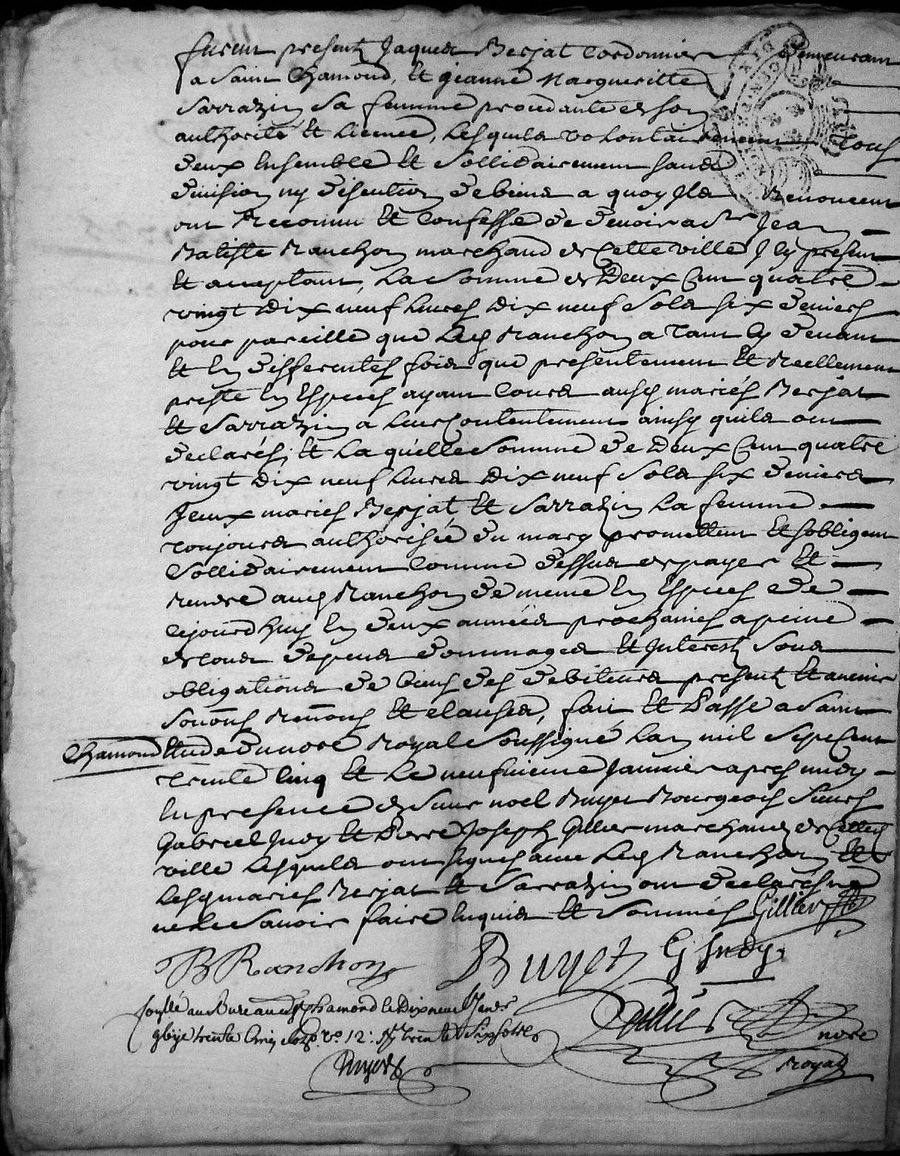 furent presents Jaques Berjat Cordonnier demeurant
a Saint Chamond, et jeanne Margueritte
Sarrazin sa femme procedante de son
authorité et Licence, Lesquels volontairement tous
deux Ensemble et Sollidairement sans
division ny discution de biens a quoy Ils Renoncent
ont Reconnu et Confessé de devoir a sr Jean
Batiste Ranchon marchand de Cette ville Icy present
et acceptant, La Somme de Deux Cent quatre
vingt Dix neuf Livres Dix neuf Sols Six deniers
pour pareille que Led Ranchon a tant Cy devant
et En differentes fois que presentement et Reellement
presté En Especes ayant Cours ausd mariés Berjat
et Sarrazin a Leur Contentement ainsy quils ont
declarés, et La quelle Somme de Deux Cent quatre
vingt Dix neuf Livres Dix neuf Sols Six deniers
Iceux mariés Berjat et Sarrazin La femme
toujours authorisée du mary promettent et Sobligent
Sollidairement Comme dessus de payer et
Rendre aud Ranchon de meme En Especes de
cejourdhuy En deux années prochaines a peine
de tous depens dommages et Interest Sous
obligations de biens des debiteurs presents et avenir
Soums Renons et clauses, fait et Passé a Saint
Chamond Etude du nore Royal Soussigné Lan mil Sept Cent
trente Cinq et Le neufvieme Janvier apres midy
En presence de Sieur noel Buyet Bourgeois Sieurs
Gabriel Judy et Pierre Joseph Gillier marchands de Cette
ville Lesquels ont signés avec Led Ranchon et
Lesd mariés Berjat et Sarrazin ont declarés
ne Le Savoir faire Enquis et Sommés Gillier
B Ranchon Buyet G Judy
au Bureau de St Chamond le Dixneuf Janv
trente Cinq vo 12
nore
Royal